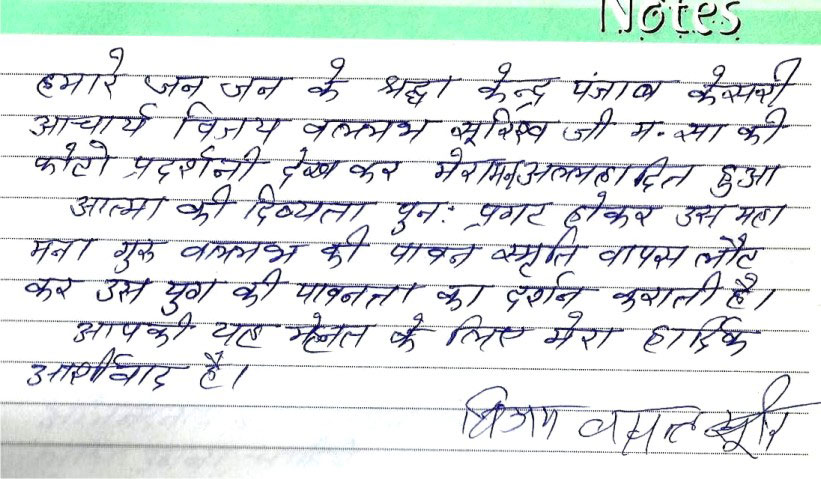 Notes
हमारे जन जन के श्रद्धा केन्द्र पंजाब केसरी
आचार्य विजय वल्लभ सूरिश्व जी म.सा की
फोटो प्रदर्शनी देख कर मेरा मन अल्लहादित हुआ
आत्मा की दिव्यता पुन: प्रगट होकर उस महा
मना गुरु वल्लभ की पावन स्मृति वापस लौट
कर उस युग की पावनता का दर्शन कराती है।
आपकी यह मेहनत के लिए मेरा हार्दिक
आर्शीवाद है।
विजय सूरि